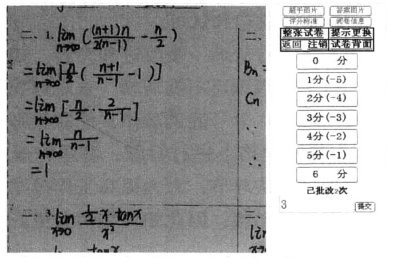 二、1. lim n→∞ ((n+1)n/2(n-1) - n/2)
= lim n→∞ [n/2 (n+1/n-1 - 1)]
= lim n→∞ [n/2 · 2/n-1]
= lim n→∞ n/n-1
= 1
二、3. lim x→0 ½x·tanx/x²
二、
Bn =
Cn
∵
∴
二
lim
整张试卷 提示更换
返回 注销 试卷背面
0 分
1分(-5)
2分(-4)
3分(-3)
4分(-2)
5分(-1)
6 分
已批改2次
3 提交